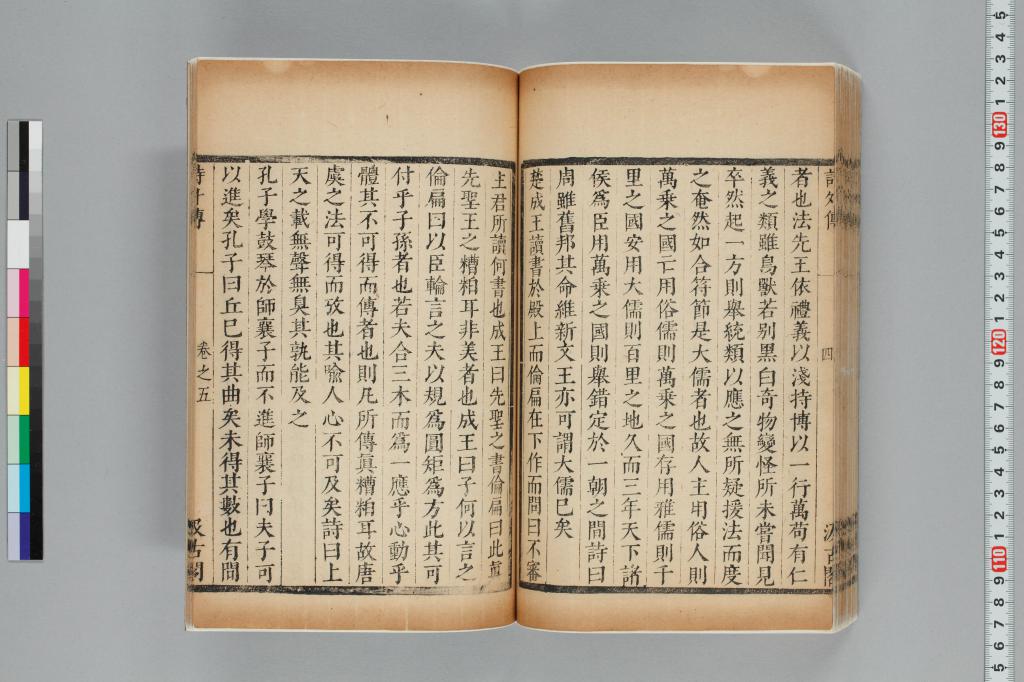 詩外傳 四 汲古閣
者也法先王依禮義以淺持博以一行萬苟有仁
義之類雖鳥獸若别黑白奇物變怪所未嘗聞見
卒然起一方則舉統類以應之無所疑援法而度
之奄然如合符節是大儒者也故人主用俗人則
萬乘之國亡用俗儒則萬乘之國存用雅儒則千
里之國安用大儒則百里之地久而三年天下諸
侯爲臣用萬乘之國則舉錯定於一朝之間詩曰
周雖舊邦其命維新文王亦可謂大儒巳矣
楚成王讀書於殿上而倫扁在下作而問曰不審
主君所讀何書也成王曰先聖之書倫扁曰此眞
先聖王之糟粕耳非美者也成王曰子何以言之
倫扁曰以臣輪言之夫以規爲圓矩爲方此其可
付乎子孫者也若夫合三木而爲一應乎心動乎
體其不可得而傳者也則凡所傳眞糟粕耳故唐
虞之法可得而攷也其喩人心不可及矣詩曰上
天之載無聲無臭其孰能及之
孔子學鼓琴於師襄子而不進師襄子曰夫子可
以進矣孔子曰丘巳得其曲矣未得其數也有間
詩外傳 卷之五 汲古閣